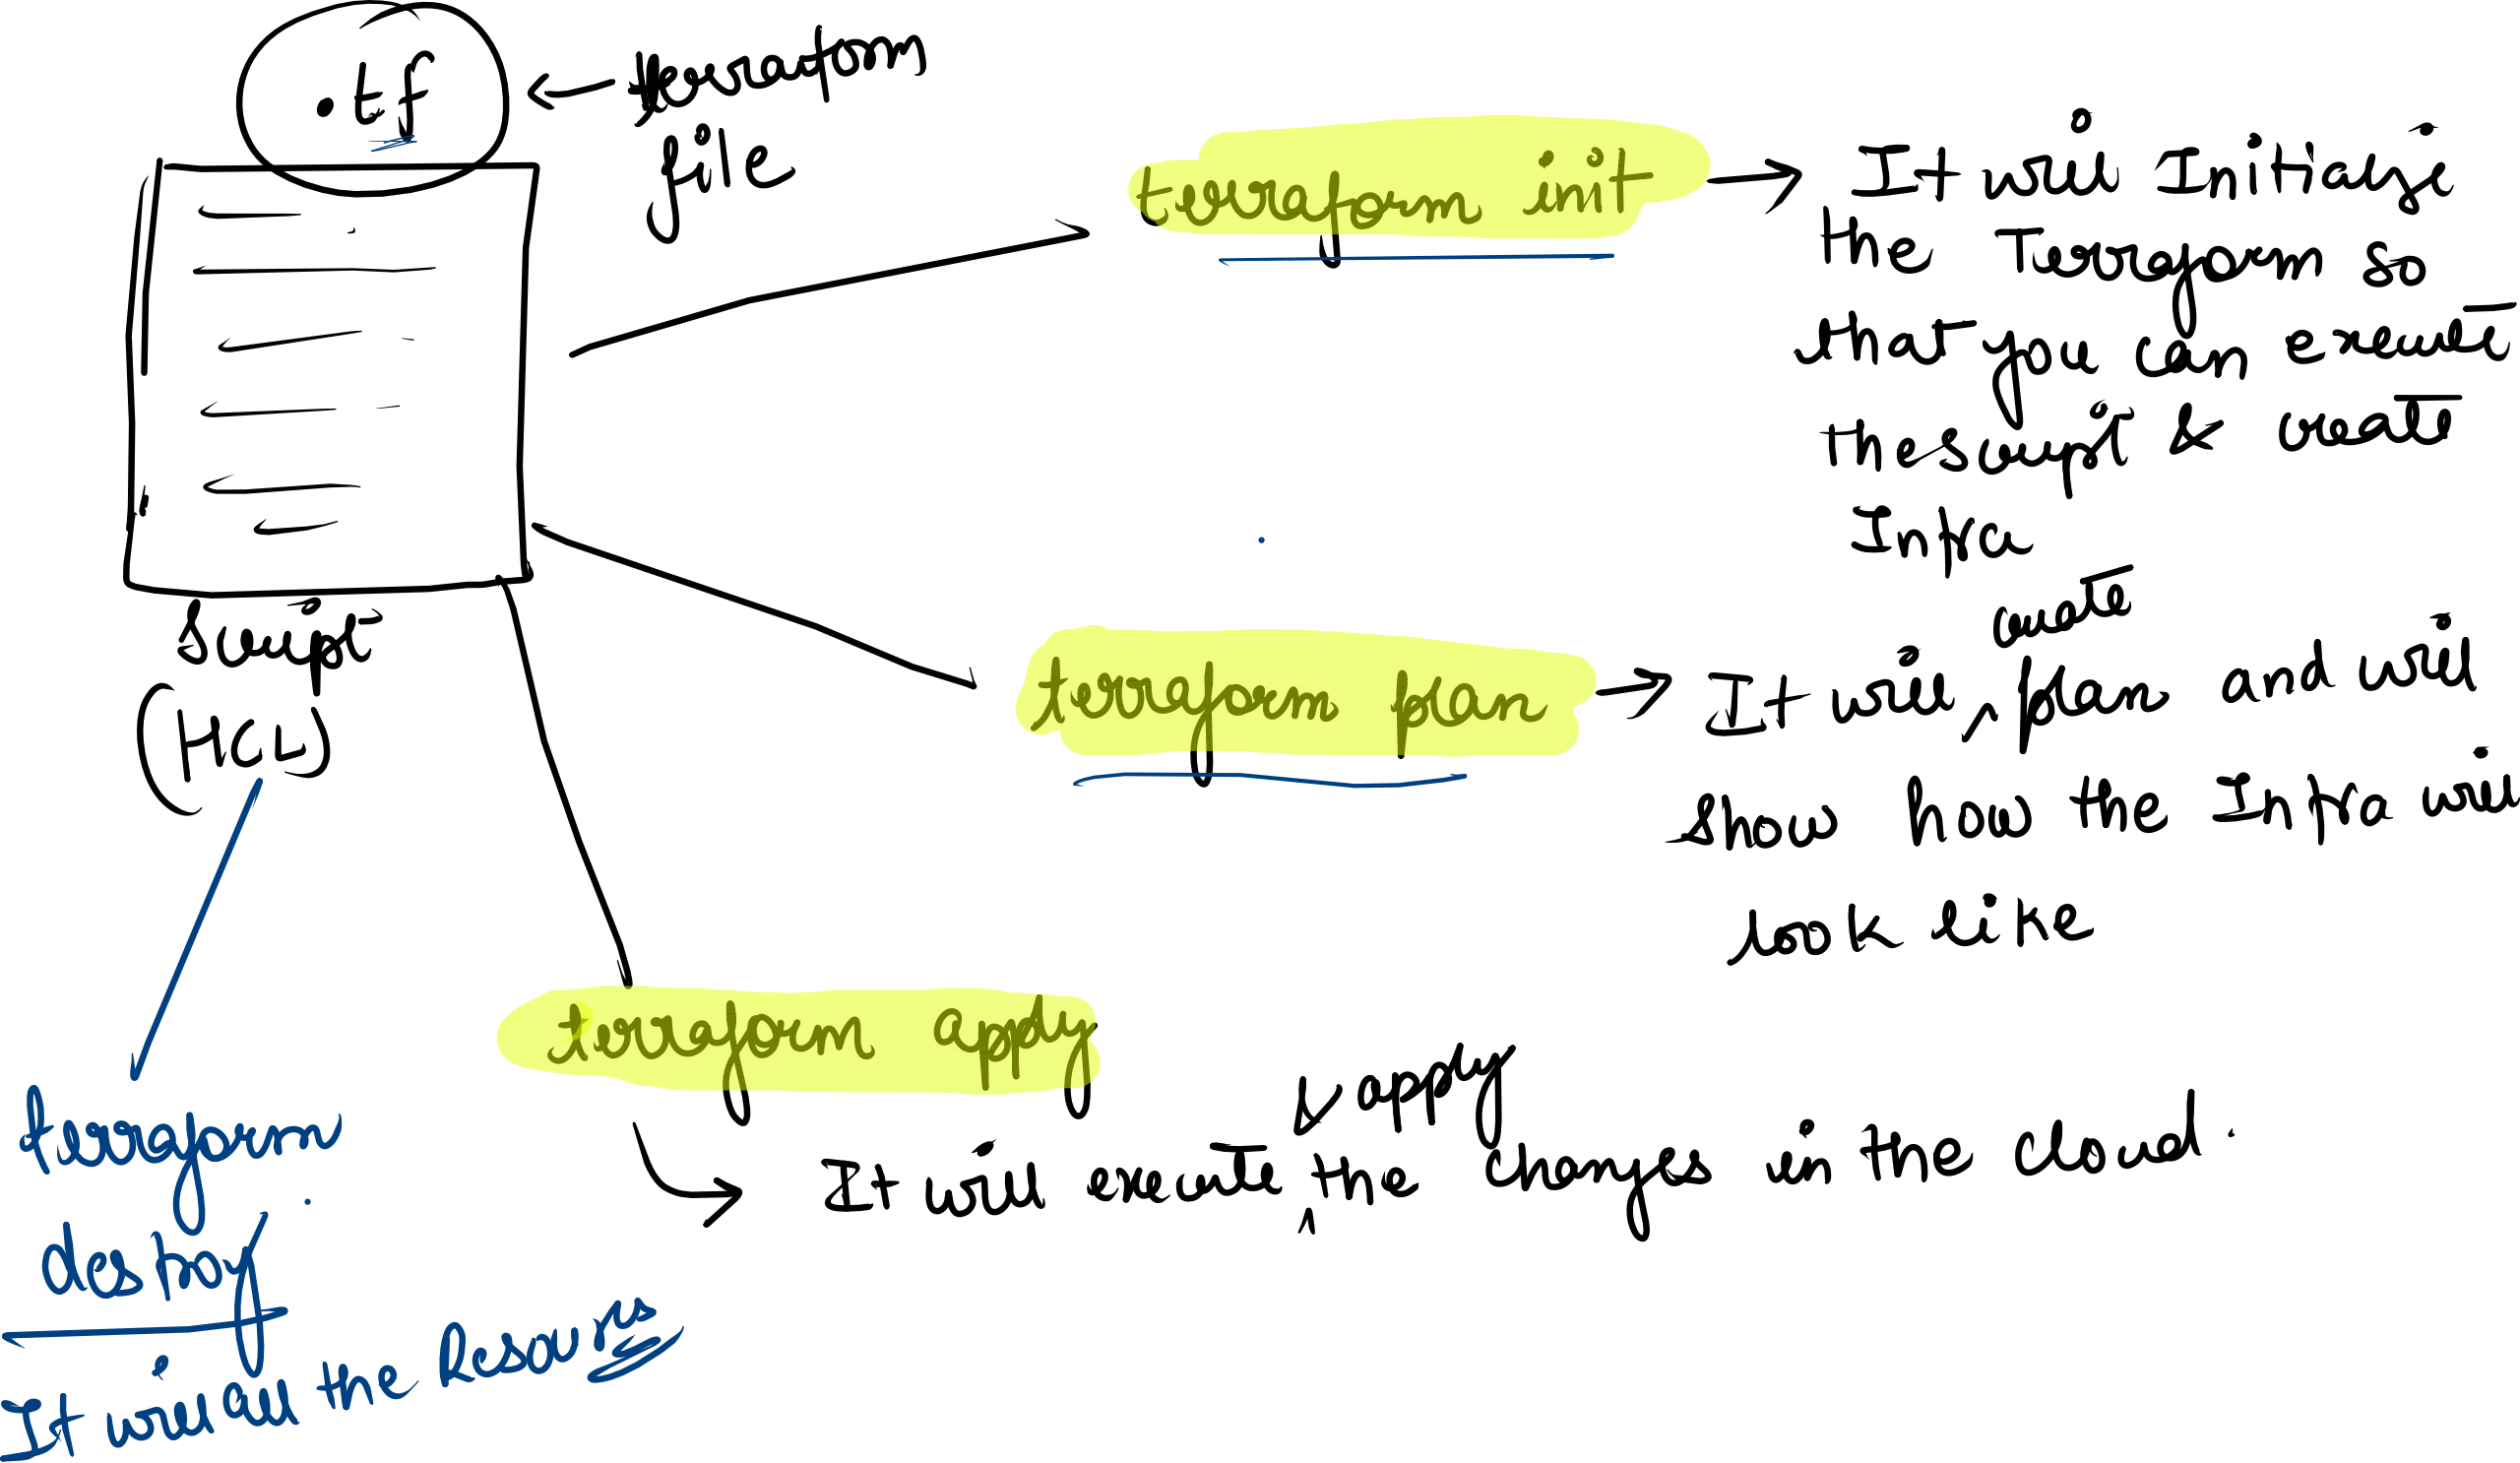 .tf
terraform
file
Script
(HCL)
terraform init
It will Initialize
the Terraform so
that you can execute
the script & create
Infra
terraform plan
It will create plan and will
show how the Infra will
look like
terraform apply
It will execute & apply the changes in the cloud.
terraform
destroy
It will all the Resources